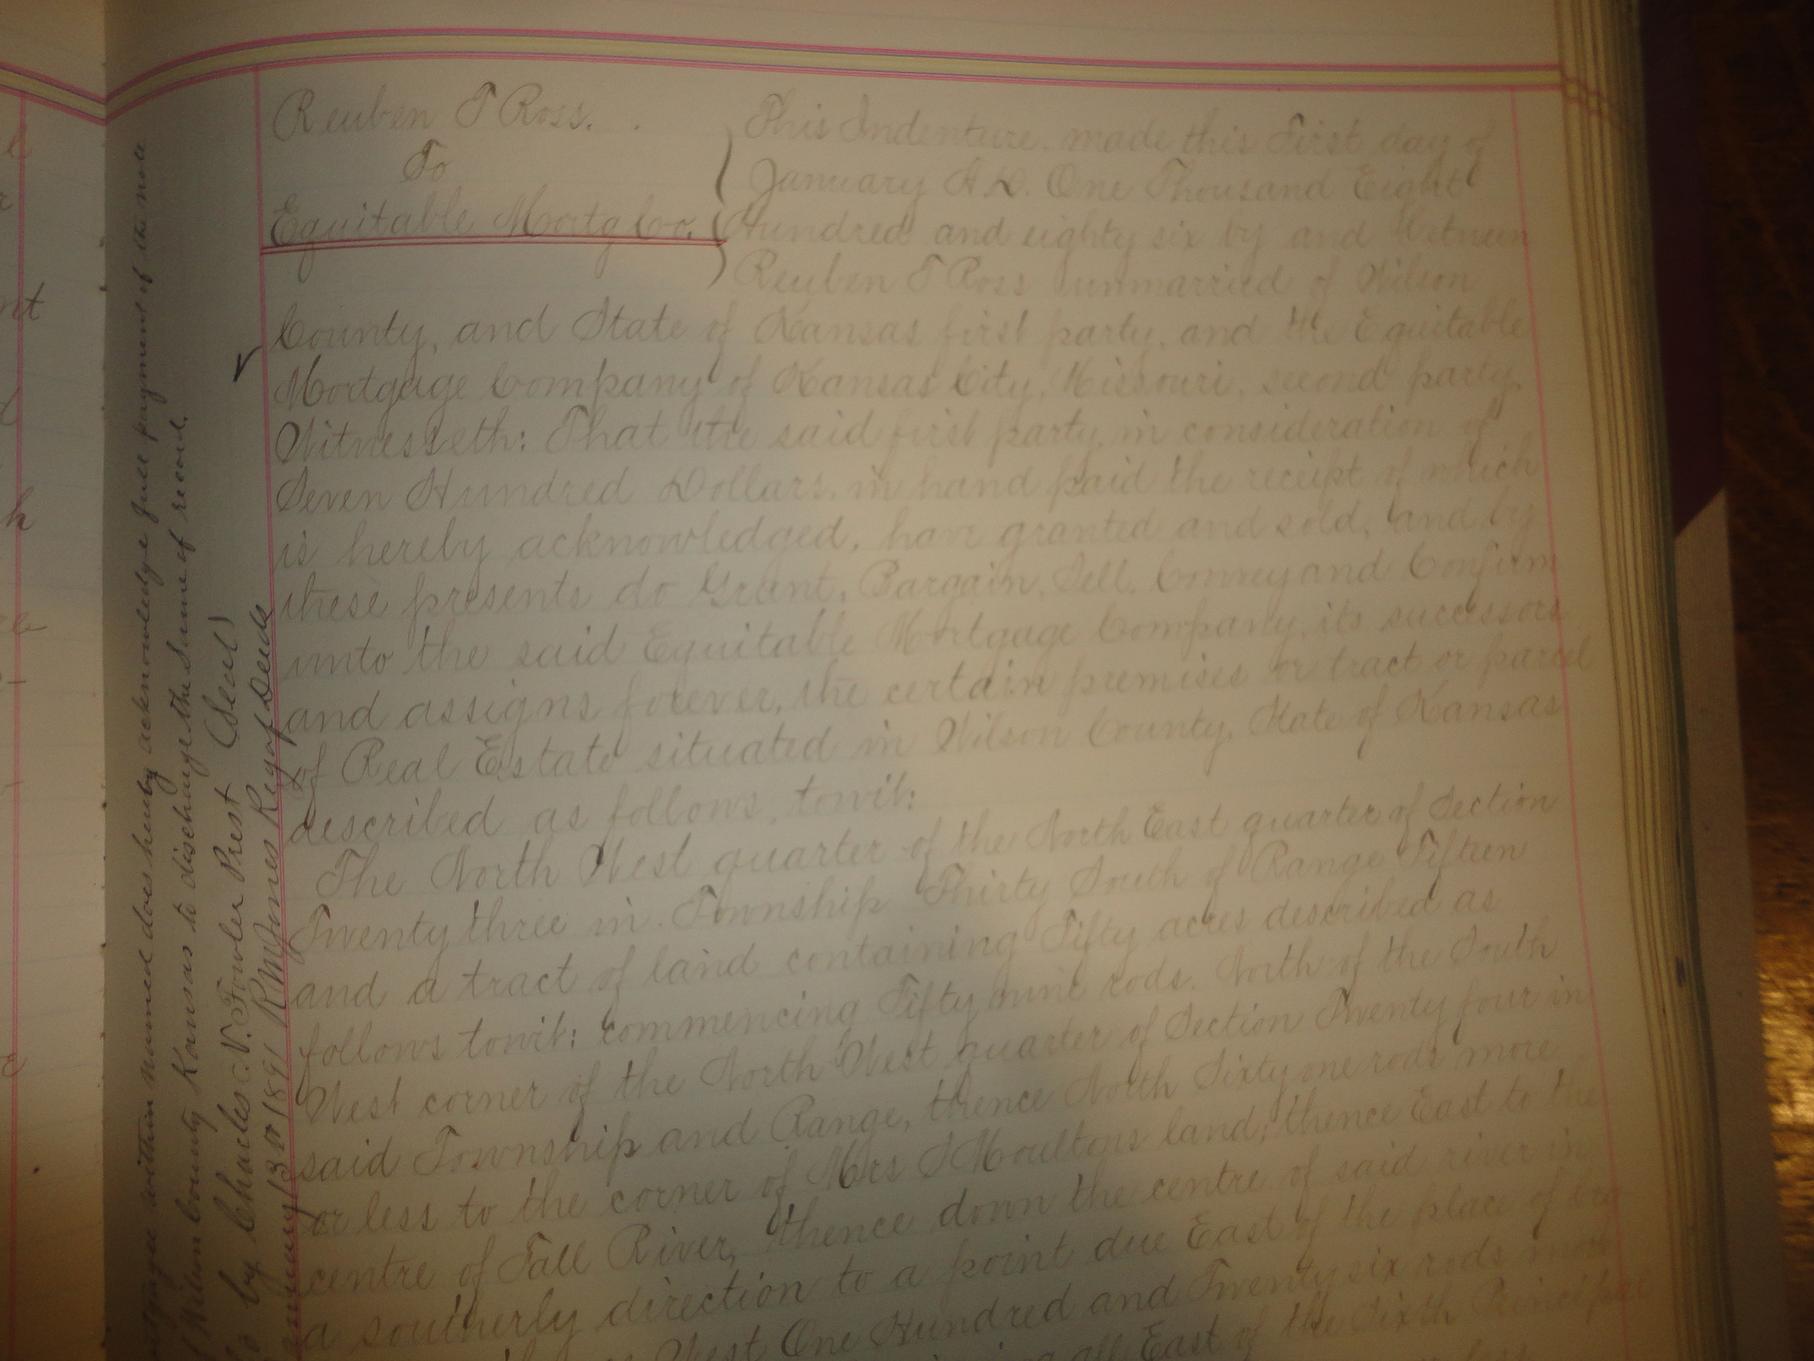 Reuben T Ross.
To
Equitable Mortg Co.
This Indenture, made this First day of
January A.D. One Thousand Eight
Hundred and eighty six by and between
Reuben T Ross unmarried of Wilson
County, and State of Kansas first party, and the Equitable
Mortgage Company of Kansas City, Missouri, second party,
Witnesseth: That the said first party, in consideration of
Seven Hundred Dollars, in hand paid the receipt of which
is hereby acknowledged, have granted and sold, and by
these presents do Grant, Bargain, Sell, Convey and Confirm
unto the said Equitable Mortgage Company, its successors
and assigns forever, the certain premises or tract or parcel
of Real Estate situated in Wilson County, State of Kansas
described as follows, towit:
The North West quarter of the North East quarter of Section
Twenty three in Township Thirty South of Range Fifteen
and a tract of land containing Fifty acres described as
follows towit: commencing Fifty nine rods North of the South
West corner of the North West quarter of Section Twenty four in
said Township and Range, thence North Sixty one rods more
or less to the corner of Mrs S Moultons land; thence East to the
centre of Fall River, thence down the centre of said river in
a southerly direction to a point due East of the place of
West One Hundred and Twenty six rods more
all East of the Sixth Principal
within named does hereby acknowledge full payment of the note
Wilson County Kansas to discharge the same of record.
by Charles N. Fowler Prest (Seal)
1891 R M Jones Reg of Deeds